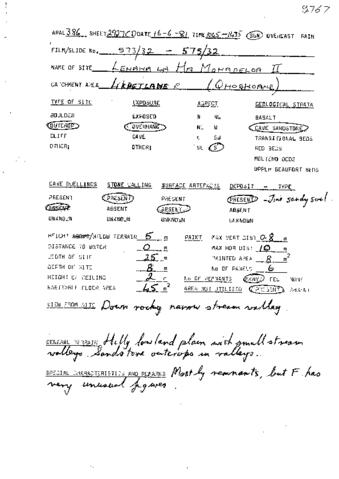 9767
ARAL 386 SHEET 2927CD DATE 16-6-81 TIME SUN OVERCAST RAIN
FILM/SLIDE No. 573/32 - 575/32
NAME OF SITE LEHAHA LA HA MOHAPELOA II
CATCHMENT AREA LIKHETLANE R (QHOQHOANE)
TYPE OF SITE EXPOSURE ASPECT GEOLOGICAL STRATA
BOULDER EXPOSED N NE BASALT
OUTCROP OVERHANG CAVE SANDSTONE
CLIFF CAVE TRANSITIONAL BEDS
OTHER: OTHER: S RED BEDS
MOLTENO BEDS
UPPER BEAUFORT BEDS
CAVE DWELLINGS STONE WALLING SURFACE ARTEFACTS DEPOSIT - TYPE
PRESENT PRESENT PRESENT PRESENT - Fine sandy soil
ABSENT ABSENT ABSENT ABSENT
UNKNOWN UNKNOWN UNKNOWN
HEIGHT ABOVE/BELOW TERRAIN 5 m PAINT MAX VERT DIST 0.8 m
DISTANCE TO WATER 0 m MAX HOR DIST 10 m
WIDTH OF SITE 25 m PAINTED AREA 8 m²
DEPTH OF SITE 8 m No OF PANELS 6
HEIGHT OF CEILING 2 m No OF REMNANTS FEW MANY
HABITABLE FLOOR AREA 45 m² AREA NOT UTILIZED PRESENT ABSENT
VIEW FROM SITE Down rocky narrow stream valley
GENERAL TERRAIN Hilly lowland plain with small stream
valleys. Sandstone outcrops in valleys.
SPECIAL CHARACTERISTICS AND REMARKS Mostly remnants, but F has
very unusual figures.